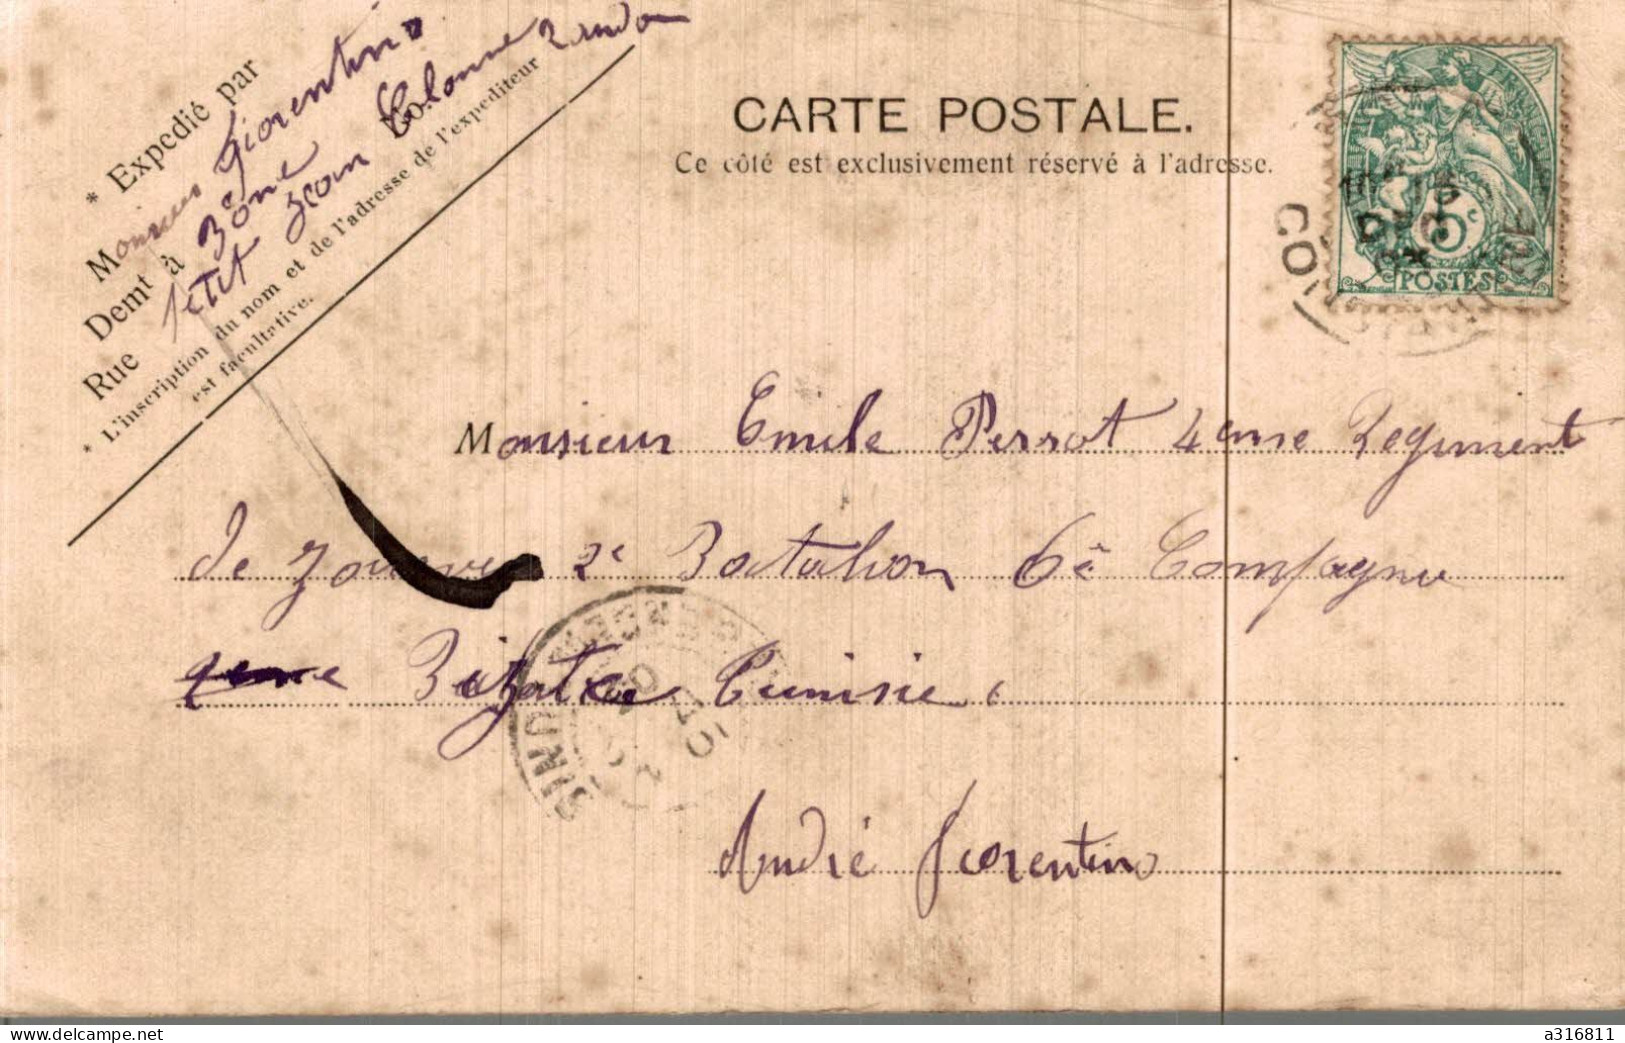 * Expedié par
Monsieur Fiorentino
Demt à Bône
Rue Petit Jean Colonne Randon
* L'inscription du nom et de l'adresse de l'expediteur
est facultative.
CARTE POSTALE.
Ce côté est exclusivement réservé à l'adresse.
5c
POSTES
DEC
Monsieur Emile Perrot 4eme Regiment
de Zouaves 2e Batalion 6e Compagnie
Bizatce Tunisie
André Fiorentino
a316811